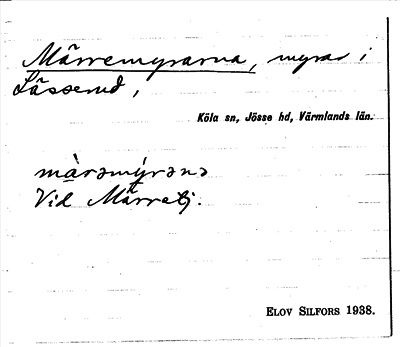 Märremyrarna, myrar i
Lässerud,
Köla sn, Jösse hd, Värmlands län.
màrəmýrənə
Vid Märretj.
ELOV SILFORS 1938.